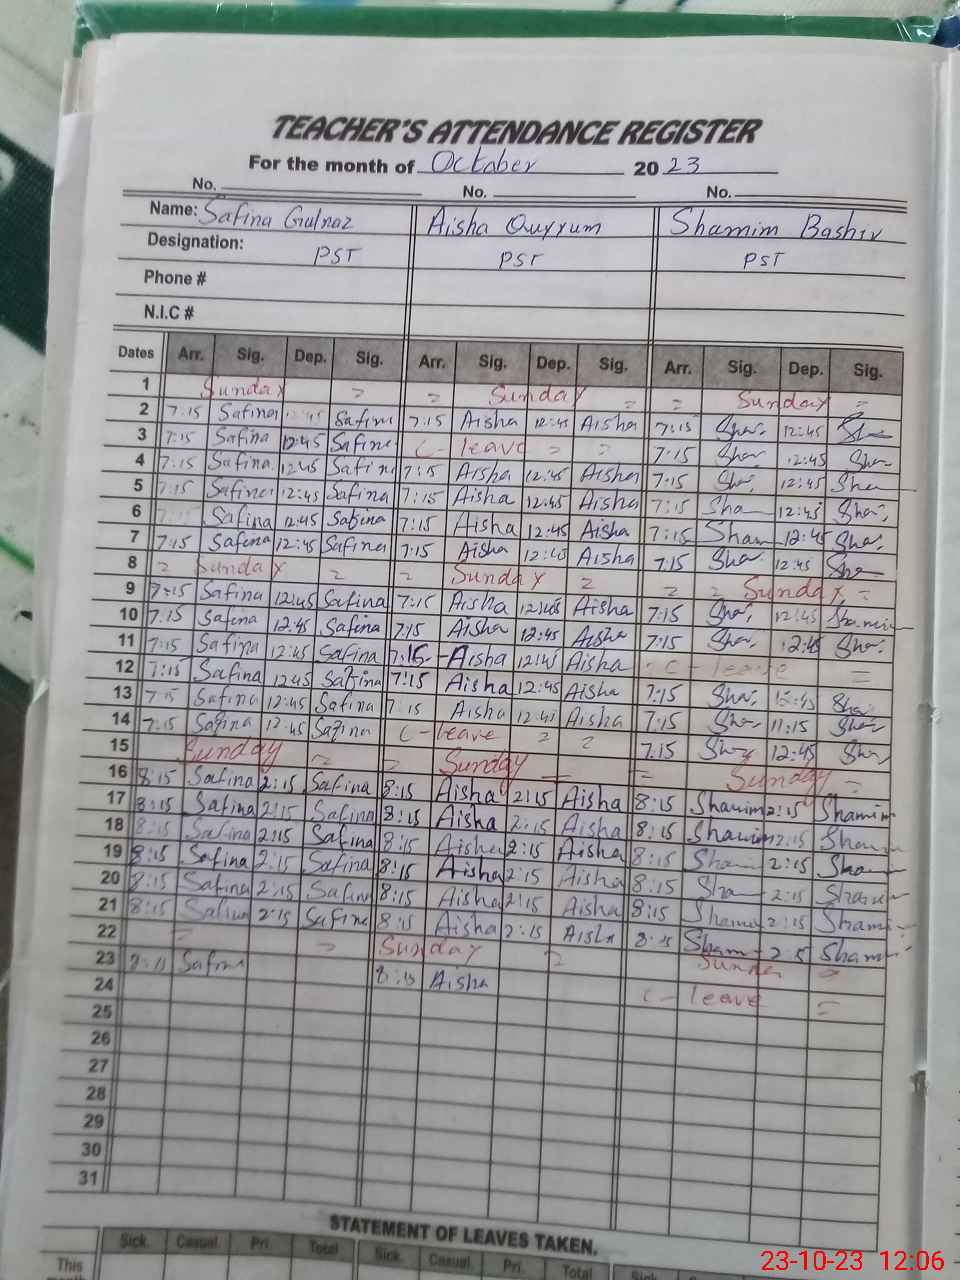 TEACHER'S ATTENDANCE REGISTER
For the month of October 2023
No. No. No.
Name: Safina Gulnaz Aisha Quyyum Shamim Bashir
Designation: PST PST PST
Phone #
N.I.C #
Dates Arr. Sig. Dep. Sig. Arr. Sig. Dep. Sig. Arr. Sig. Dep. Sig.
1 Sunday = = Sunday = = Sunday =
2 7:15 Safina 12:45 Safina 7:15 Aisha 12:45 Aisha 7:15 Sha. 12:45
3 7:15 Safina 12:45 Safina C-leave = = 7:15 Sha. 12:45 Sha
4 7:15 Safina 12:45 Safina 7:15 Aisha 12:45 Aisha 7:15 Sha. 12:45 Sha
5 7:15 Safina 12:45 Safina 7:15 Aisha 12:45 Aisha 7:15 Sha 12:45 Sha.
6 Safina 12:45 Safina 7:15 Aisha 12:45 Aisha 7:15 Sham 12:45 Sha.
7 7:15 Safina 12:45 Safina 7:15 Aisha 12:45 Aisha 7:15 Sha. 12:45 Sha
8 = Sunday = = Sunday = = = Sunday =
9 7:15 Safina 12:45 Safina 7:15 Aisha 12:45 Aisha 7:15 Sha. 12:45 Shamim
10 7:15 Safina 12:45 Safina 7:15 Aisha 12:45 Aisha 7:15 Sha. 12:45 Sha.
11 7:15 Safina 12:45 Safina 7:15 Aisha 12:45 Aisha C-leave =
12 7:15 Safina 12:45 Safina 7:15 Aisha 12:45 Aisha 7:15 Sha. 12:45 Sha
13 7:15 Safina 12:45 Safina 7:15 Aisha 12:45 Aisha 7:15 Sha 11:15 Sha
14 7:15 Safina 12:45 Safina C-leave = = 7:15 Sha 12:45 Sha
15 Sunday = = Sunday = = Sunday =
16 8:15 Safina 2:15 Safina 8:15 Aisha 2:15 Aisha 8:15 Shamim 2:15 Shamim
17 8:15 Safina 2:15 Safina 8:15 Aisha 2:15 Aisha 8:15 Shamim 2:15 Sham
18 8:15 Safina 2:15 Safina 8:15 Aisha 2:15 Aisha 8:15 Sha 2:15 Sha
19 8:15 Safina 2:15 Safina 8:15 Aisha 2:15 Aisha 8:15 Sha 2:15 Shamim
20 8:15 Safina 2:15 Safina 8:15 Aisha 2:15 Aisha 8:15 Shamim 2:15 Shami
21 8:15 Safina 2:15 Safina 8:15 Aisha 2:15 Aisha 8:15 Sham 2:15 Shami
22 = = Sunday = Sunday =
23 8:15 Safina 8:15 Aisha C-leave =
24
25
26
27
28
29
30
31
STATEMENT OF LEAVES TAKEN.
Sick. Casual. Pri. Total Sick. Casual. Pri. Total Sick.
This
month
23-10-23 12:06